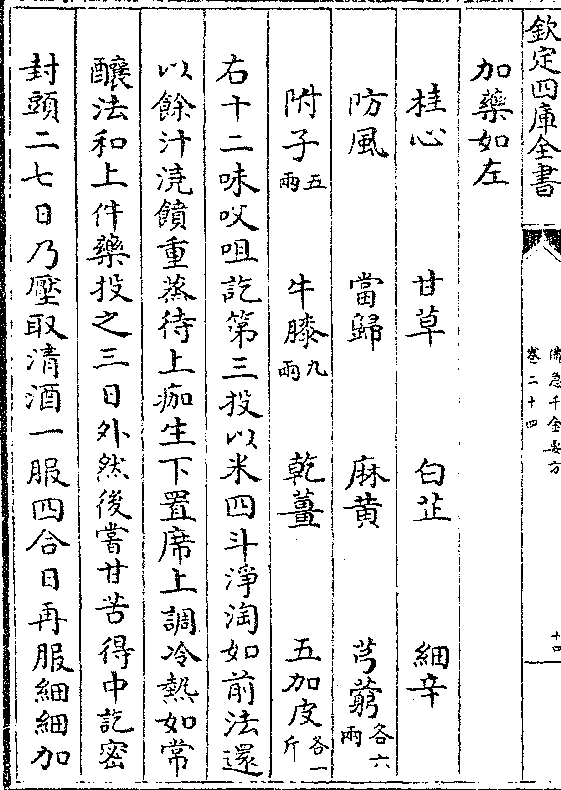 欽定四庫全書
備急千金要方
卷二十四
十四
加藥如左
桂心 甘草 白芷 細辛
防風 當歸 麻黄 芎藭各六兩
附子五兩 牛膝九兩 乾薑 五加皮各一斤
右十二味㕮咀訖第三投以米四斗淨淘如前法還
以餘汁澆饙重蒸待上痂生下置席上調冷熱如常
釀法和上件藥投之三日外然後嘗甘苦得中訖密
封頭二七日乃壓取清酒一服四合日再服細細加